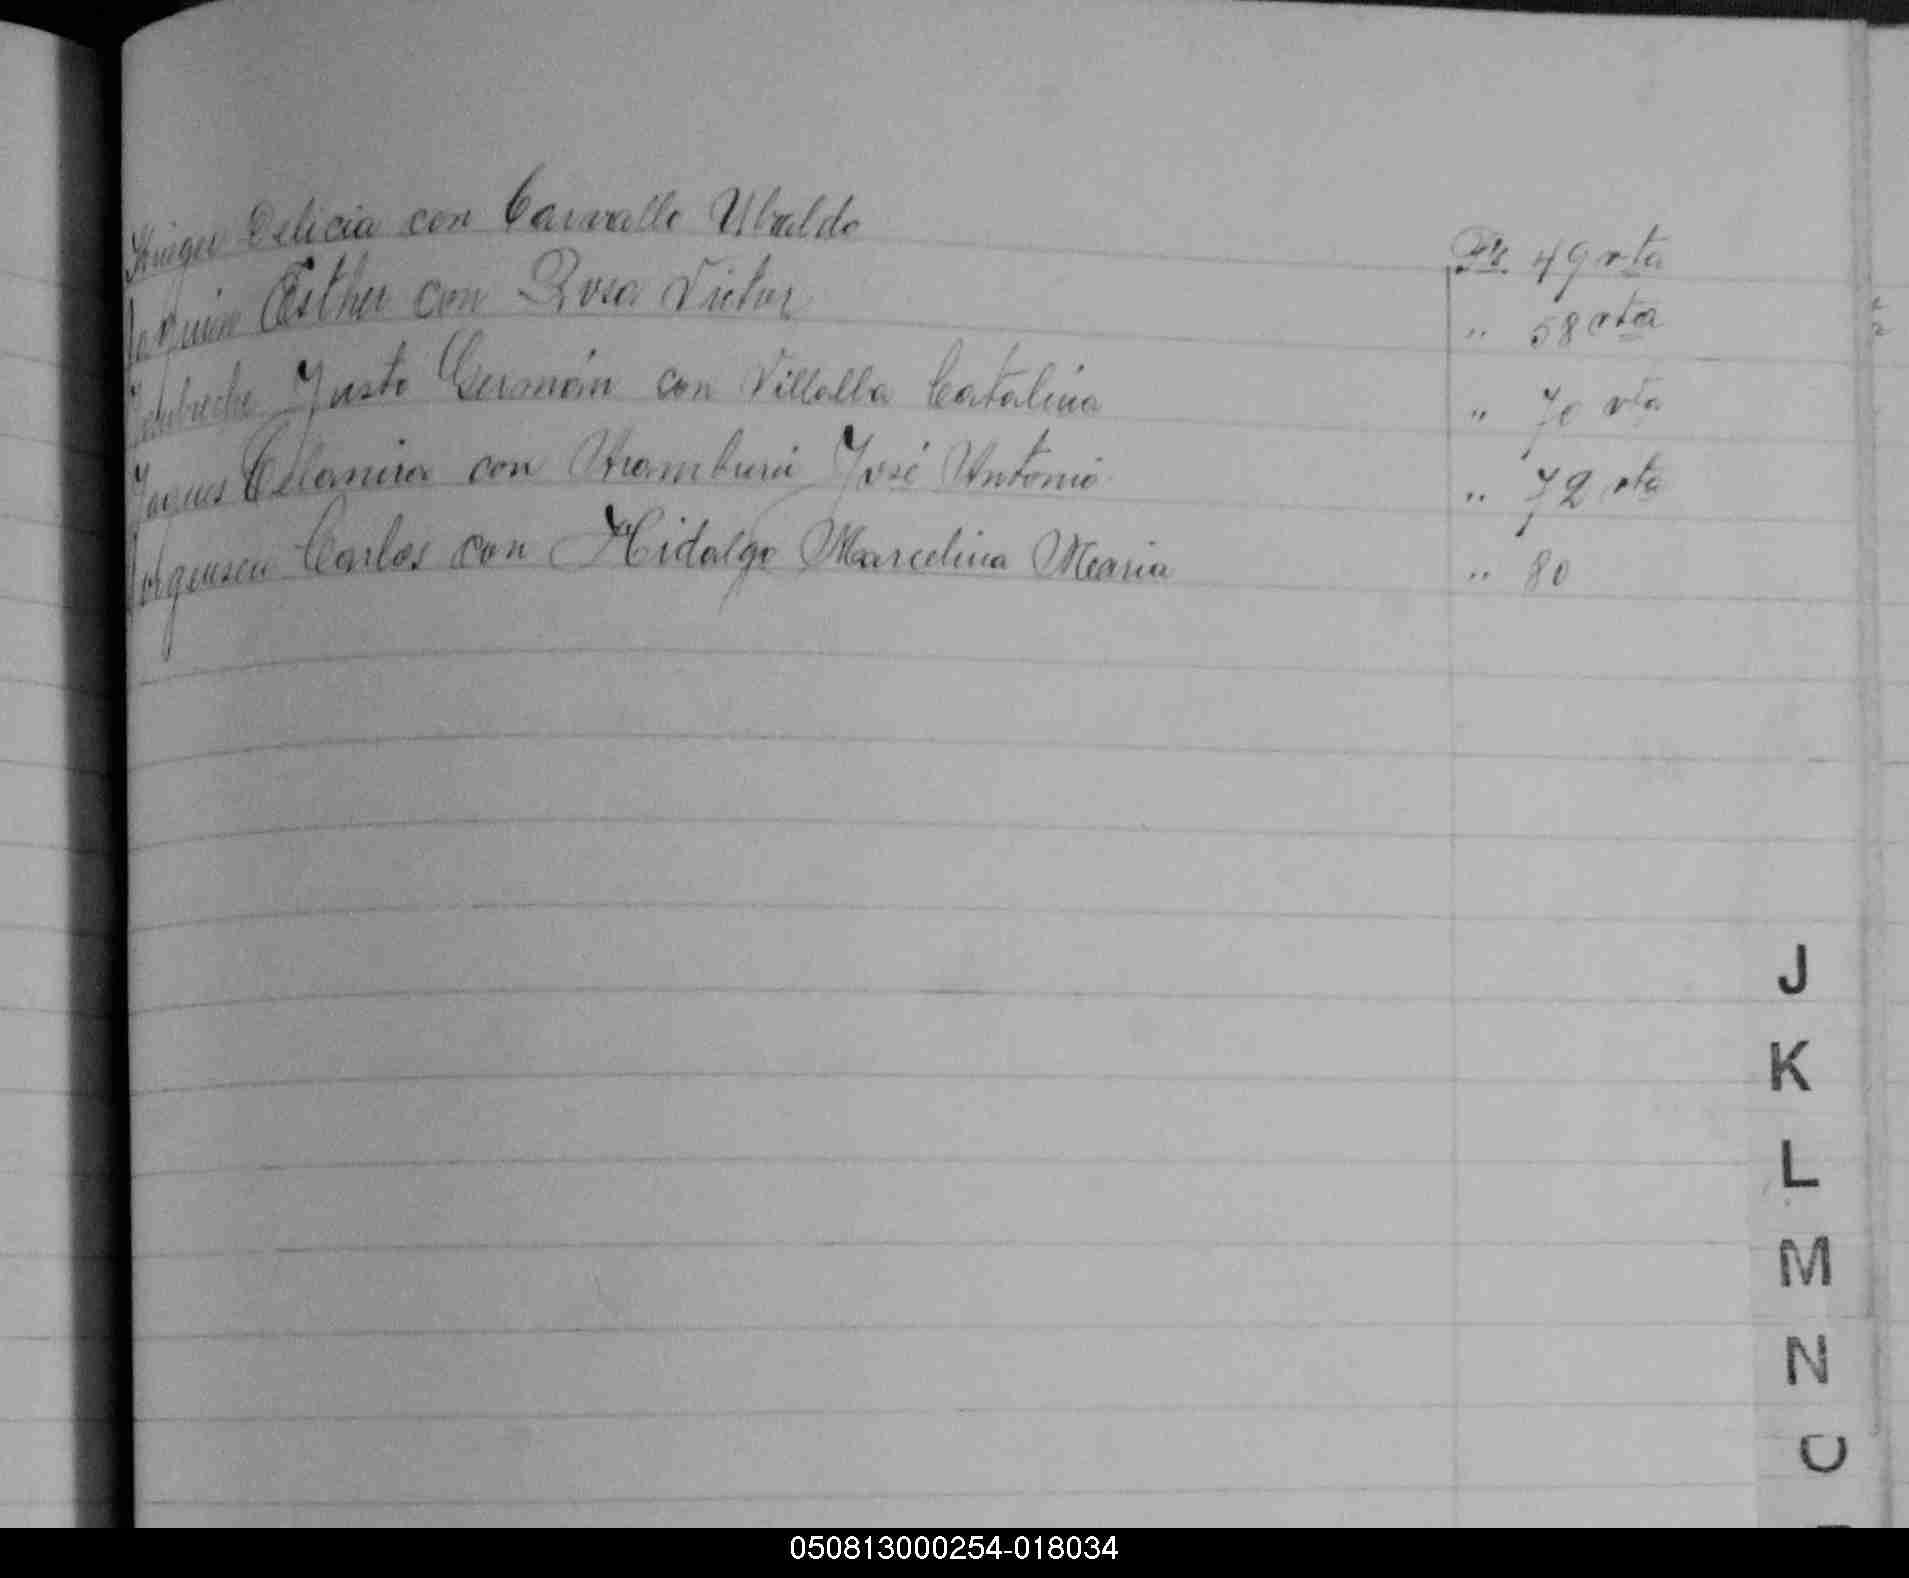 Delicia con Carvallo Ubaldo Fº 49 vta
Joaquin Esther con Rosa Victor " 58 vta
Justo Germán con Villalba Catalina " 70 vta
Jaques Celanira con Aramburú José Antonio " 72 vta
Jorgensen Carlos con Hidalgo Marcelina Maria " 80
J
K
L
M
N
O
050813000254-018034